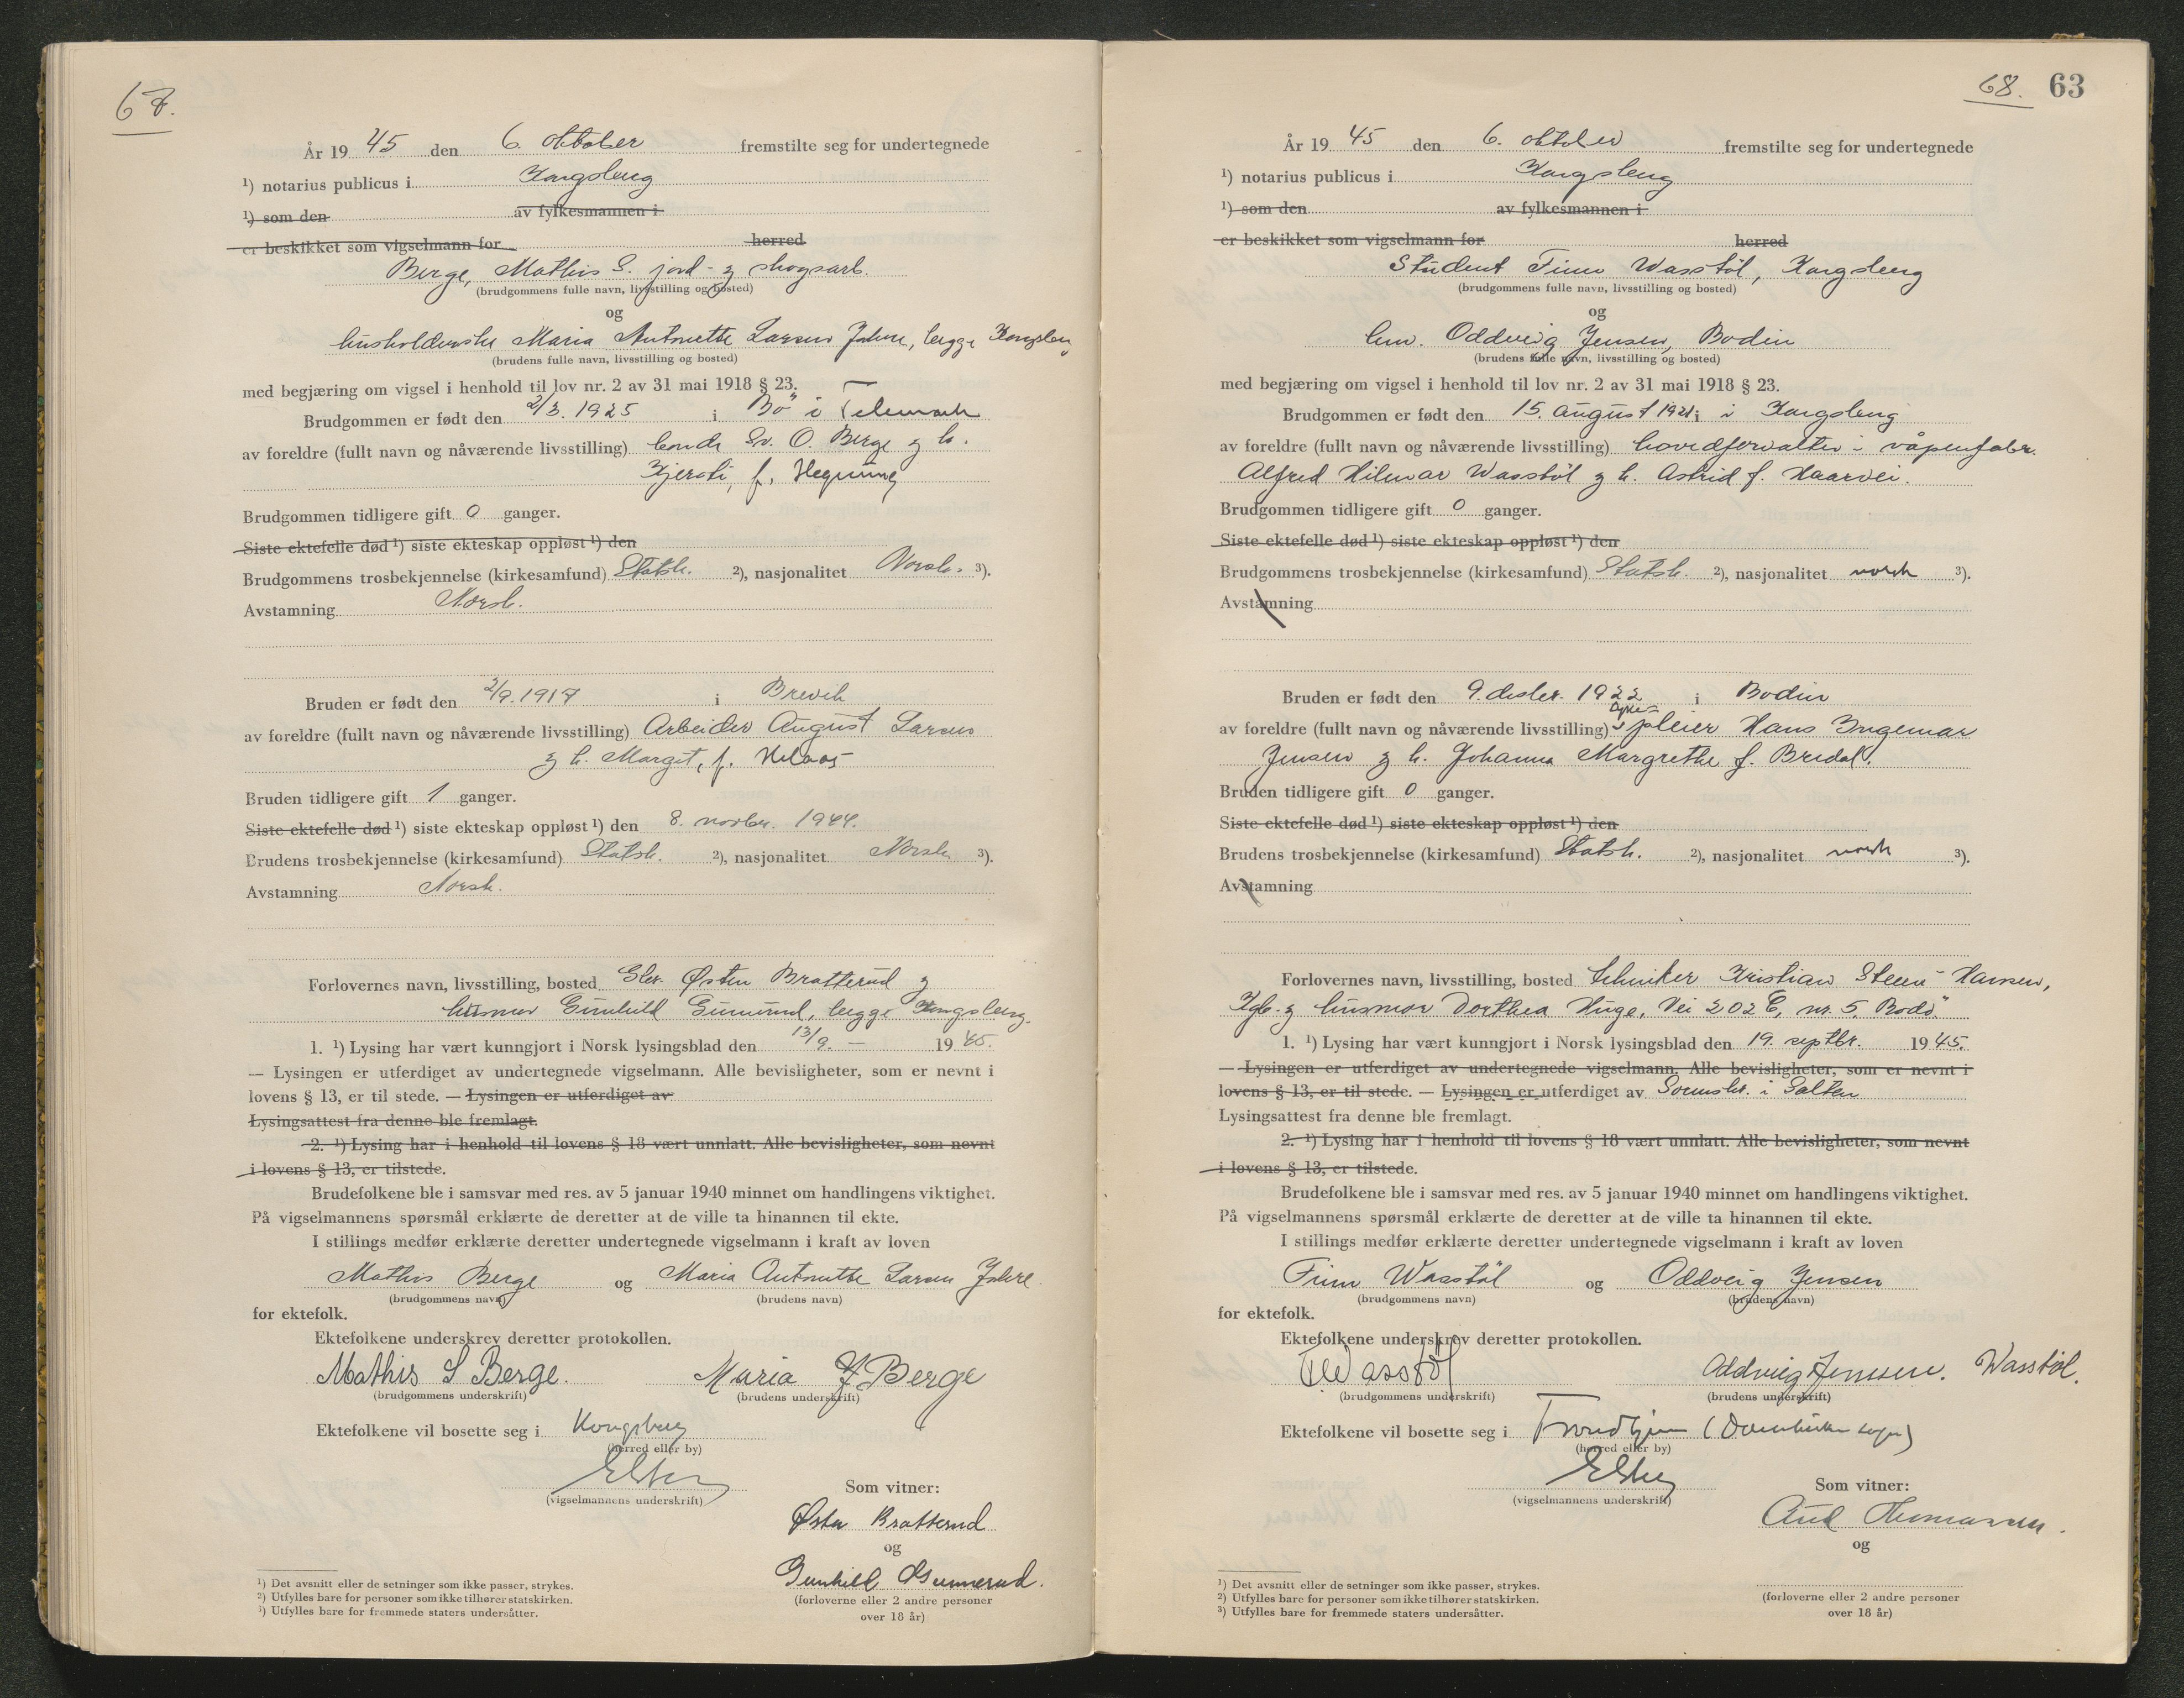 67.
År 19 45 den 6. oktober fremstilte seg for undertegnede
¹) notarius publicus i Kongsberg
¹) som den av fylkesmannen i
er beskikket som vigselmann for herred
Berge, Mathis S. jord- og skogsarb.
(brudgommens fulle navn, livsstilling og bosted)
og
husholderske Maria Antonette Larsen Jahre, begge Kongsberg
(brudens fulle navn, livsstilling og bosted)
med begjæring om vigsel i henhold til lov nr. 2 av 31 mai 1918 § 23.
Brudgommen er født den 2/3. 1925 i Bø i Telemark
av foreldre (fullt navn og nåværende livsstilling) bonde Sv. O. Berge og h.
Kjersti, f.
Brudgommen tidligere gift 0 ganger.
Siste ektefelle død ¹) siste ekteskap oppløst ¹) den
Brudgommens trosbekjennelse (kirkesamfund) Statsk. ²), nasjonalitet Norsk. ³).
Avstamning Norsk.
Bruden er født den 2/9. 1917 i Brevik
av foreldre (fullt navn og nåværende livsstilling) Arbeider August Larsen
og h. Margit, f.
Bruden tidligere gift 1 ganger.
Siste ektefelle død ¹) siste ekteskap oppløst ¹) den 8. novbr. 1944.
Brudens trosbekjennelse (kirkesamfund) Statsk. ²), nasjonalitet Norsk ³).
Avstamning Norsk.
Forlovernes navn, livsstilling, bosted Østen Bratterud og
husmor Gunhild Gunnerud, begge Kongsberg.
1. ¹) Lysing har vært kunngjort i Norsk lysingsblad den 13/9. — 19 45.
— Lysingen er utferdiget av undertegnede vigselmann. Alle bevisligheter, som er nevnt i
lovens § 13, er til stede. — Lysingen er utferdiget av
Lysingsattest fra denne ble fremlagt.
2. ¹) Lysing har i henhold til lovens § 18 vært unnlatt. Alle bevisligheter, som nevnt
i lovens § 13, er tilstede.
Brudefolkene ble i samsvar med res. av 5 januar 1940 minnet om handlingens viktighet.
På vigselmannens spørsmål erklærte de deretter at de ville ta hinannen til ekte.
I stillings medfør erklærte deretter undertegnede vigselmann i kraft av loven
Mathis Berge og Maria Antonette Larsen Jahre
(brudgommens navn) (brudens navn)
for ektefolk.
Ektefolkene underskrev deretter protokollen.
Mathis S Berge. Maria J. Berge
(brudgommens underskrift) (brudens underskrift)
Ektefolkene vil bosette seg i Kongsberg
(herred eller by)
(vigselmannens underskrift)
Som vitner:
Østen Bratterud
og
Gunhild Gunnerud.
(forloverne eller 2 andre personer
over 18 år)
¹) Det avsnitt eller de setninger som ikke passer, strykes.
²) Utfylles bare for personer som ikke tilhører statskirken.
³) Utfylles bare for fremmede staters undersåtter.
68. 63
År 19 45 den 6. oktober fremstilte seg for undertegnede
¹) notarius publicus i Kongsberg
¹) som den av fylkesmannen i
er beskikket som vigselmann for herred
Student Finn Wasstøl, Kongsberg
(brudgommens fulle navn, livsstilling og bosted)
og
Oddveig Jensen, Bodin
(brudens fulle navn, livsstilling og bosted)
med begjæring om vigsel i henhold til lov nr. 2 av 31 mai 1918 § 23.
Brudgommen er født den 15. august 1921 i Kongsberg
av foreldre (fullt navn og nåværende livsstilling) hovedforvalter i våpenfabr.
Alfred Hilmar Wasstøl og h. Astrid f. Haarvei.
Brudgommen tidligere gift 0 ganger.
Siste ektefelle død ¹) siste ekteskap oppløst ¹) den
Brudgommens trosbekjennelse (kirkesamfund) Statsk. ²), nasjonalitet norsk ³).
Avstamning
Bruden er født den 9. desbr. 1922 i Bodin
av foreldre (fullt navn og nåværende livsstilling) pleier Hans Ingemar
Jensen og h. Johanna Margrethe f. Bredal.
Bruden tidligere gift 0 ganger.
Siste ektefelle død ¹) siste ekteskap oppløst ¹) den
Brudens trosbekjennelse (kirkesamfund) Statsk. ²), nasjonalitet norsk ³).
Avstamning
Forlovernes navn, livsstilling, bosted tekniker Kristian Steen-Hansen,
Kgb. og husmor Dorthea Huge, Vei 202 C, nr. 5, Bodø.
1. ¹) Lysing har vært kunngjort i Norsk lysingsblad den 19. septbr. 19 45.
— Lysingen er utferdiget av undertegnede vigselmann. Alle bevisligheter, som er nevnt i
lovens § 13, er til stede. — Lysingen er utferdiget av Sorenskr. i Salten
Lysingsattest fra denne ble fremlagt.
2. ¹) Lysing har i henhold til lovens § 18 vært unnlatt. Alle bevisligheter, som nevnt
i lovens § 13, er tilstede.
Brudefolkene ble i samsvar med res. av 5 januar 1940 minnet om handlingens viktighet.
På vigselmannens spørsmål erklærte de deretter at de ville ta hinannen til ekte.
I stillings medfør erklærte deretter undertegnede vigselmann i kraft av loven
Finn Wasstøl og Oddveig Jensen
(brudgommens navn) (brudens navn)
for ektefolk.
Ektefolkene underskrev deretter protokollen.
F Wasstøl Oddveig Jensen. Wasstøl.
(brudgommens underskrift) (brudens underskrift)
Ektefolkene vil bosette seg i Trondhjem (Domkirken sogn)
(herred eller by)
(vigselmannens underskrift)
Som vitner:
Aud
og
(forloverne eller 2 andre personer
over 18 år)
¹) Det avsnitt eller de setninger som ikke passer, strykes.
²) Utfylles bare for personer som ikke tilhører statskirken.
³) Utfylles bare for fremmede staters undersåtter.